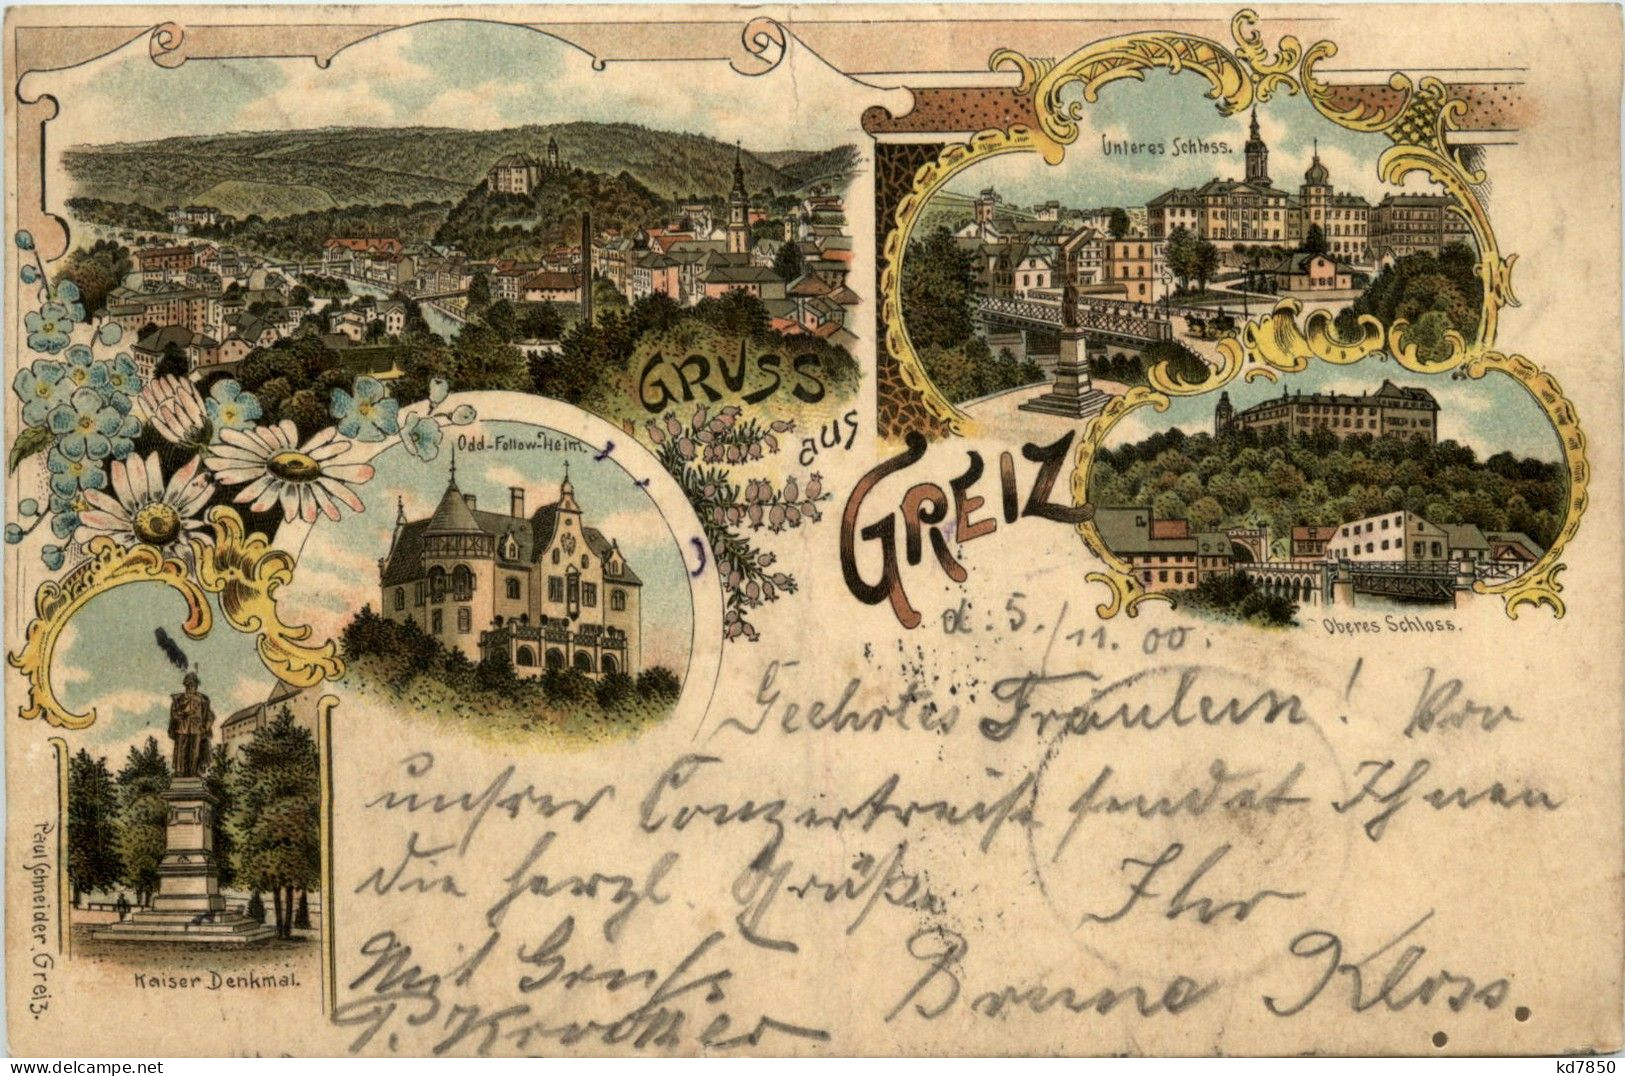 Unteres Schloss.
GRUSS
aus
GREIZ
Odd-Fellow-Heim.
Oberes Schloss.
Kaiser Denkmal.
Paul Schneider, Greiz.
d. 5./11. 00.
Geehrtes Fräulein! Von
unsrer Conzertreise sendet Ihnen
die herzl. Grüße Ihr
Bruno Kloss.
Mit Gruß
P.
kd7850